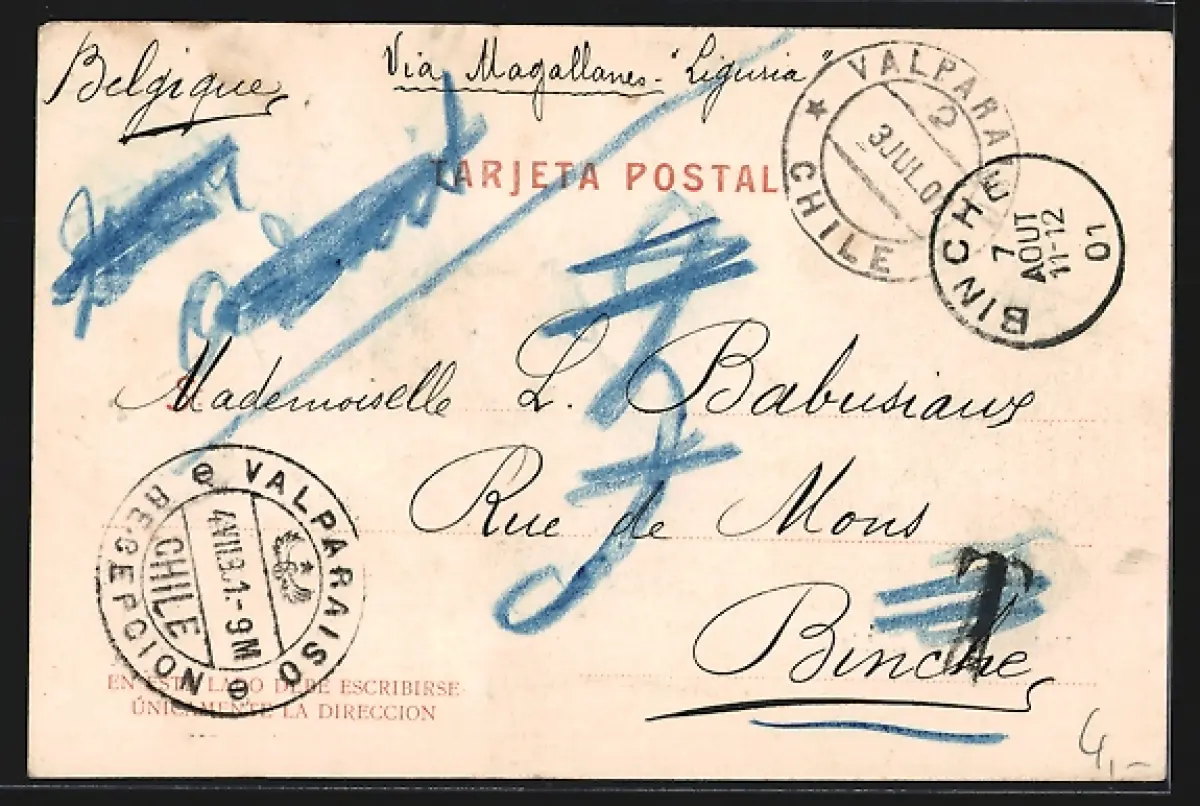 Belgique
Via Magallanes - "Liguria"
TARJETA POSTAL
VALPARAISO
2
3 JUL 0
CHILE
BINCHE
7
AOUT
11-12
01
Mademoiselle L. Babusiaux
Rue de Mons
Binche
T
VALPARAISO
RECEPCION
CHILE
4.VII.01.-9M
EN ESTE LADO DEBE ESCRIBIRSE
ÚNICAMENTE LA DIRECCION
4,-